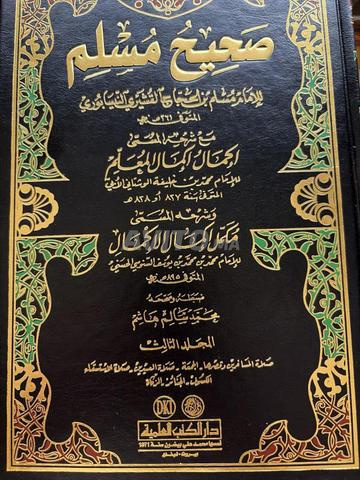 صحيح مسلم
للإمام مسلم بن الحجاج القشيري النيسابوري
المتوفى ٢٦١ هجري
مع شرحه المسمى
إكمال إكمال المعلم
للإمام محمد بن خليفة الوشتاني الأبي
المتوفى سنة ٨٢٧ أو ٨٢٨ هـ
وشرحه المسمى
مكمل إكمال الإكمال
للإمام محمد بن محمد بن يوسف السنوسي الحسني
المتوفى ٨٩٥ هجري
ضبطه وصححه
محمد سالم هاشم
المجلد الثالث
صلاة المسافرين وقصرها - الجمعة - صلاة العيدين - صلاة الاستسقاء
الكسوف - الجنائز - الزكاة
DKI
دار الكتب العلمية
أسسها محمد علي بيضون سنة 1971
بيروت - لبنان